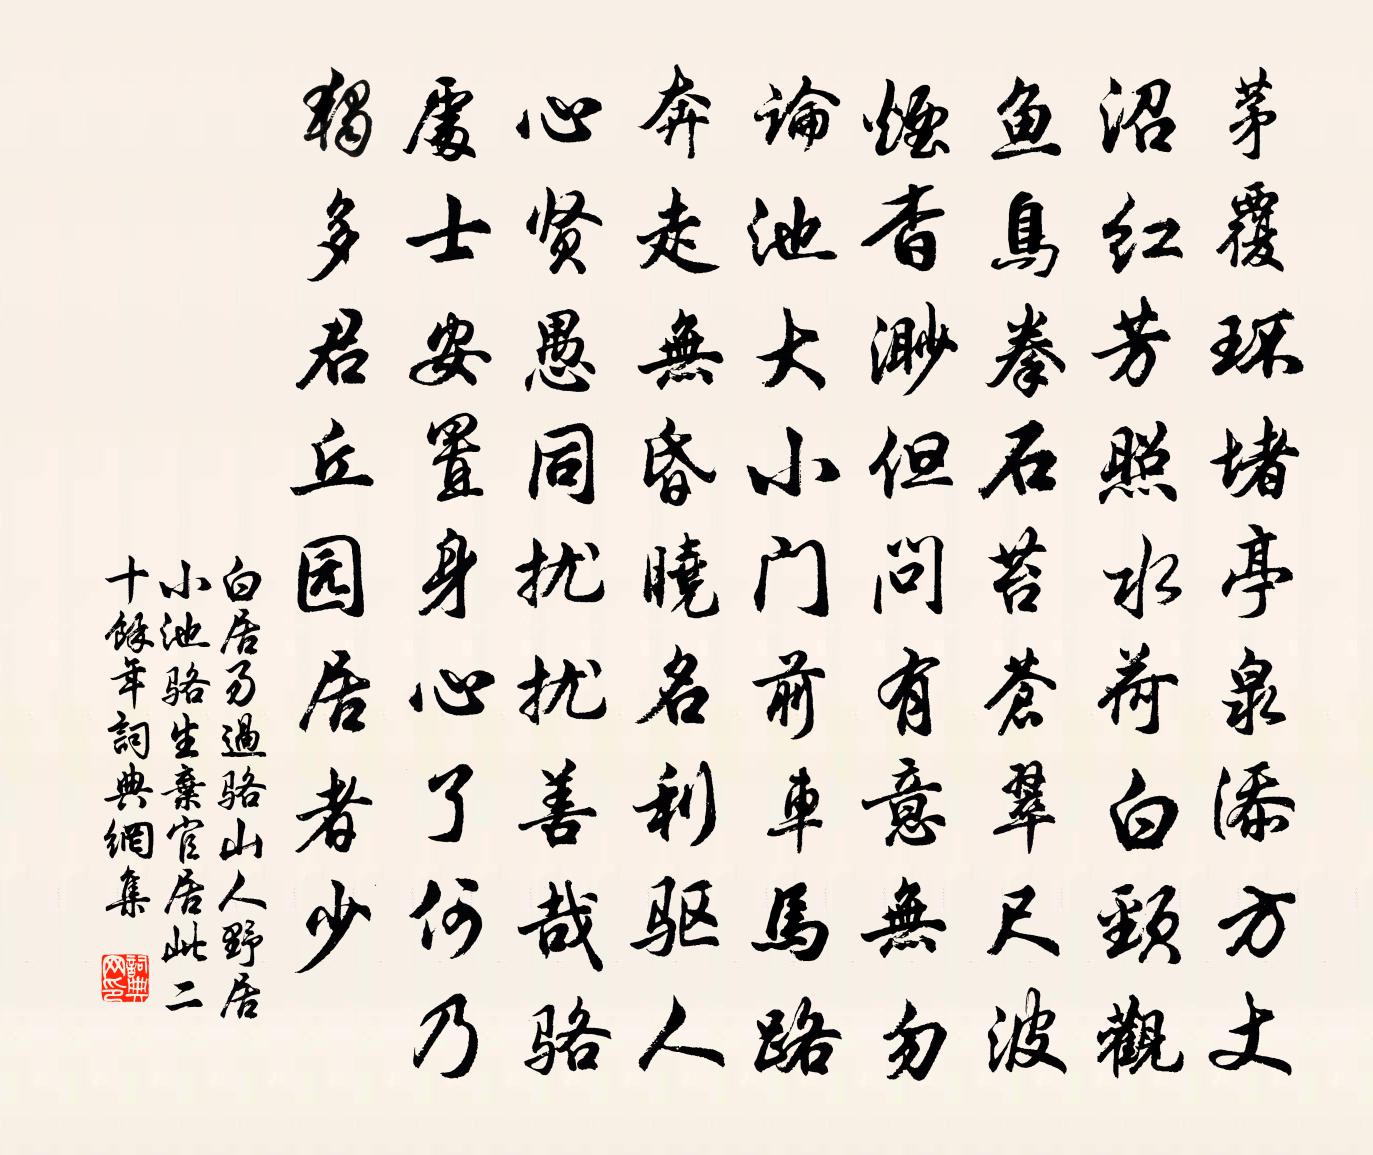 茅覆环堵亭泉添方丈
沼红芳照水荷白颈觀
魚鳥拳石苔蒼翠尺波
煙杳渺但问有意無勿
論池大小门前車馬路
奔走無昏曉名利驱人
心贤愚同扰扰善哉骆
處士安置身心了何乃
獨多君丘园居者少
白居易過骆山人野居
小池骆生棄官居此二
十餘年詞典網集
詞典网印